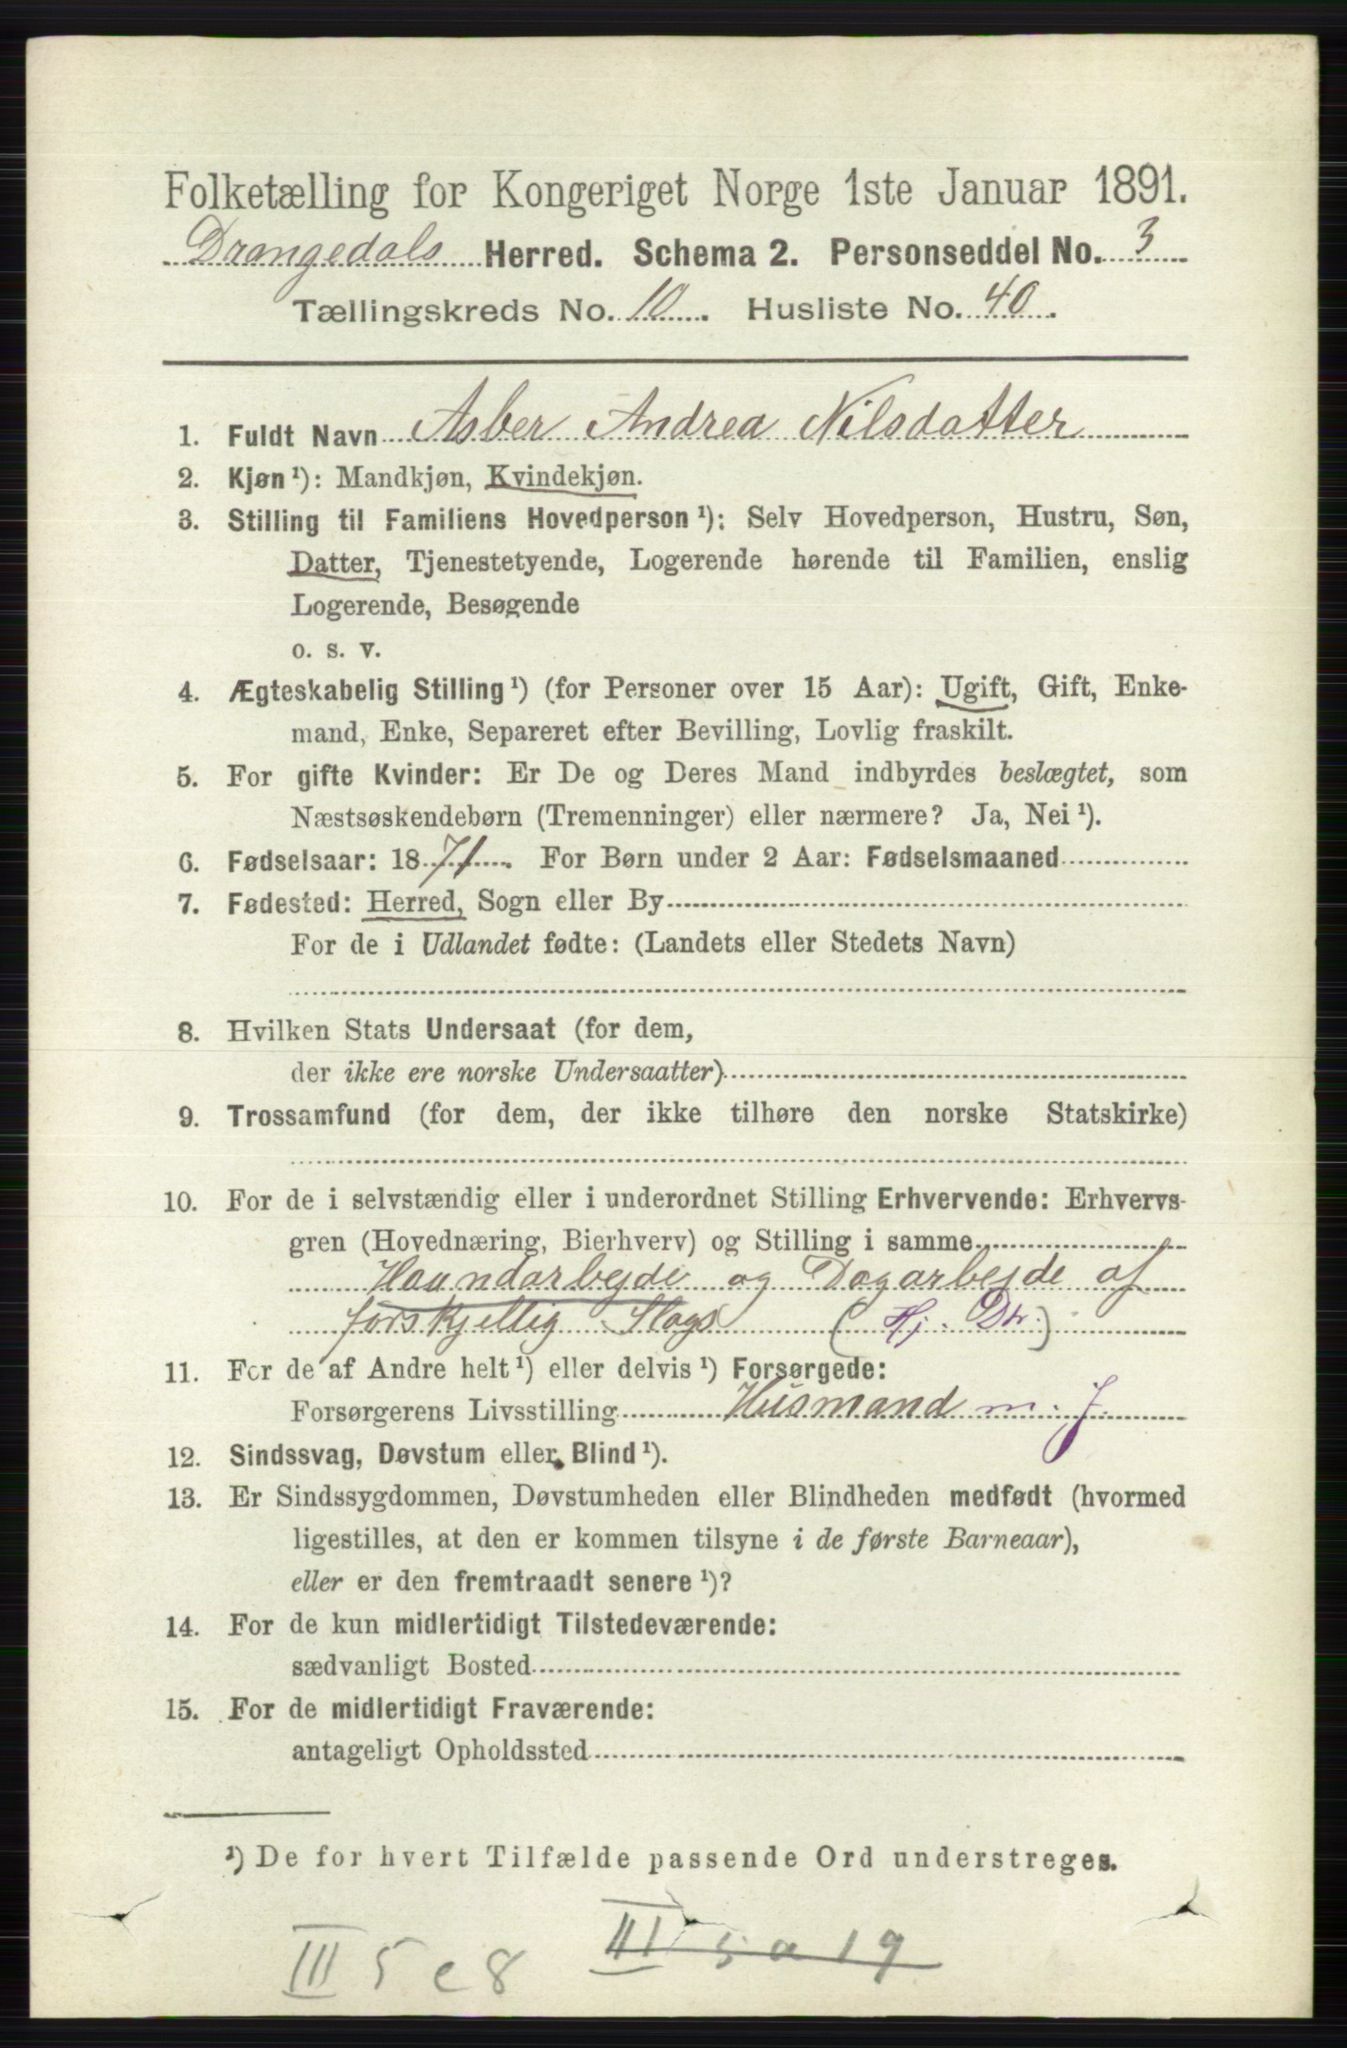 Folketælling for Kongeriget Norge 1ste Januar 1891.
Drangedals Herred. Schema 2. Personseddel No. 3
Tællingskreds No. 10. Husliste No. 40.
1. Fuldt Navn Asber Andrea Nilsdatter
2. Kjøn ¹): Mandkjøn, Kvindekjøn.
3. Stilling til Familiens Hovedperson ¹): Selv Hovedperson, Hustru, Søn,
Datter, Tjenestetyende, Logerende hørende til Familien, enslig
Logerende, Besøgende
o. s. v.
4. Ægteskabelig Stilling ¹) (for Personer over 15 Aar): Ugift, Gift, Enke-
mand, Enke, Separeret efter Bevilling, Lovlig fraskilt.
5. For gifte Kvinder: Er De og Deres Mand indbyrdes beslægtet, som
Næstsøskendebørn (Tremenninger) eller nærmere? Ja, Nei ¹).
6. Fødselsaar: 1871. For Børn under 2 Aar: Fødselsmaaned
7. Fødested: Herred, Sogn eller By
For de i Udlandet fødte: (Landets eller Stedets Navn)
8. Hvilken Stats Undersaat (for dem,
der ikke ere norske Undersaatter)
9. Trossamfund (for dem, der ikke tilhøre den norske Statskirke)
10. For de i selvstændig eller i underordnet Stilling Erhvervende: Erhvervs-
gren (Hovednæring, Bierhverv) og Stilling i samme
Haandarbejde og Dagarbejde af
forskjellig Slags (Hj. Dtr.)
11. For de af Andre helt ¹) eller delvis ¹) Forsørgede:
Forsørgerens Livsstilling Husmand m. J.
12. Sindssvag, Døvstum eller Blind ¹).
13. Er Sindssygdommen, Døvstumheden eller Blindheden medfødt (hvormed
ligestilles, at den er kommen tilsyne i de første Barneaar),
eller er den fremtraadt senere ¹)?
14. For de kun midlertidigt Tilstedeværende:
sædvanligt Bosted
15. For de midlertidigt Fraværende:
antageligt Opholdssted
¹) De for hvert Tilfælde passende Ord understreges.
III 5 e 8 III 5 a 19